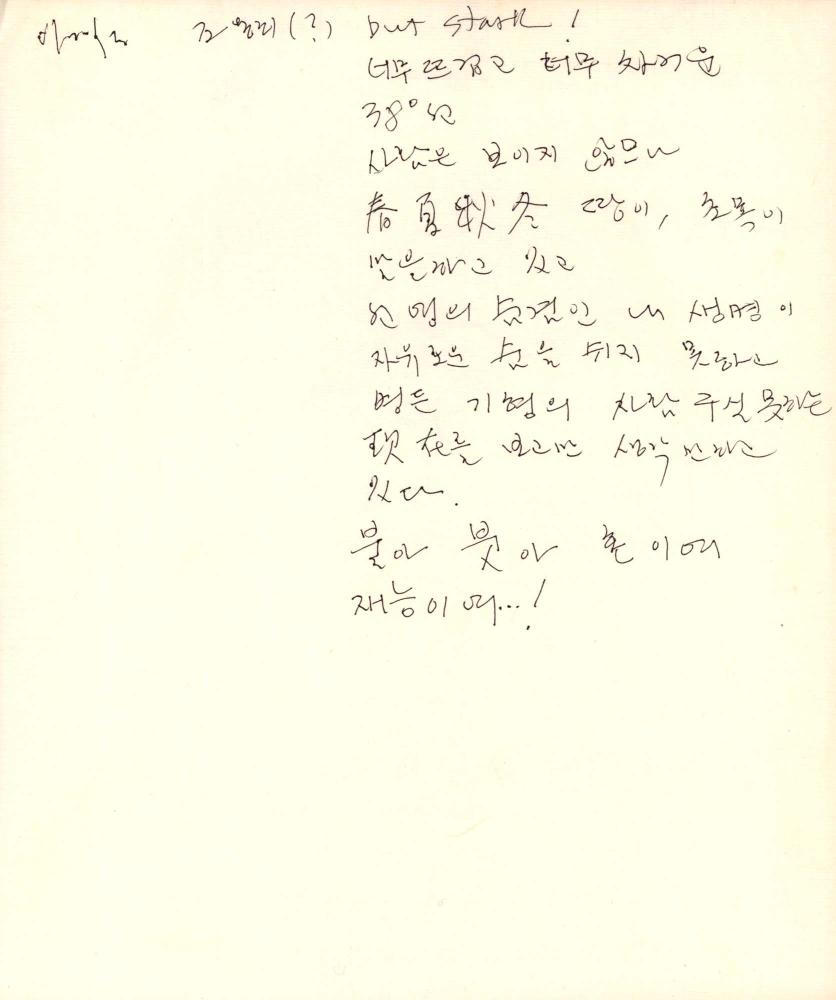 (?) but stark!
너무 뜨겁고 너무 차가운
38°선
사람은 보이지 않으나
春夏秋冬 땅이, 초목이
말을하고 있고
선영의 숨결인 내 생명이
자유로운 숨을 쉬지 못하고
병든 기형의 사람 구실 못하는
現在를 보고만 생각만하고
있다.
불아 붓아 혼이여
재능이여...!